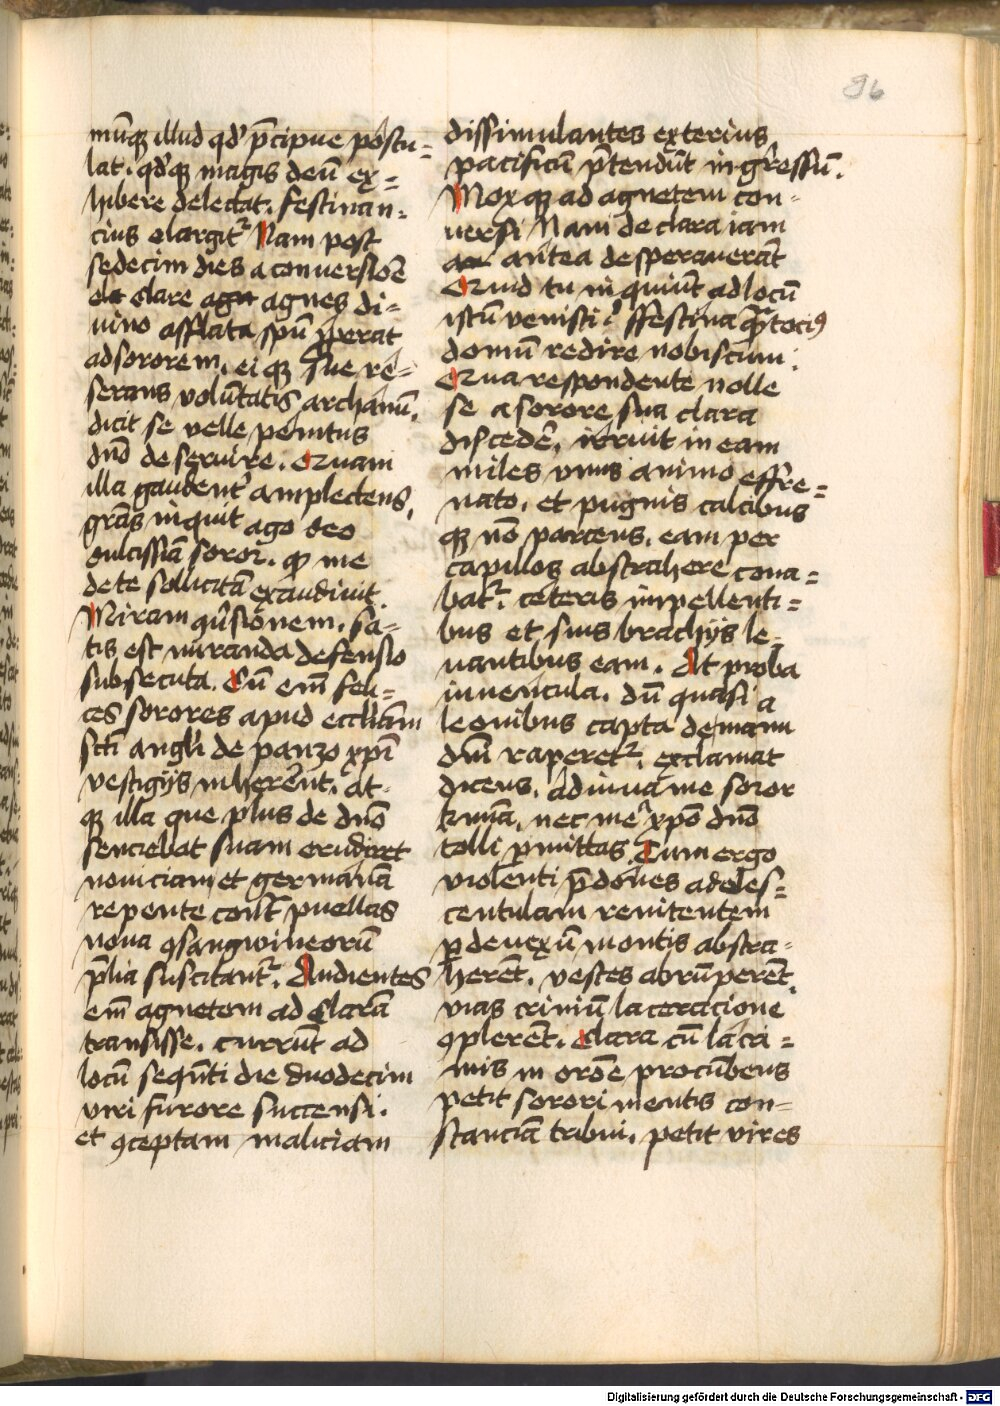 86
mūq; illud qd' p̄cipue postu=
lat. qd'q; magis deū ex=
hibere delectat. festinan=
cius elargit᷑ Nam post
sedecim dies a conuersiōē
cla clare agn agnes di=
uino afflata spū pperat
ad sororem. ei q; sue re=
serans volūtatis archanū.
dicit se velle penitus
dn̄o deseruire. Quam
illa gaudent᷑ amplectens,
grās inquit ago deo
dulcissīa soror. qd me
de te sollicitā exaudiuit.
Miram gūsionem. sa=
tis est miranda defensio
subsecuta. Cū em̄ feli=
ces sorores apud eccl'iam
sc̄ti angl'i de panzo xp̄i
vestigijs inherent. at=
q; illa que plus de dn̄o
senciebat suam erudiret
nouiciam et germanā
repente cont̄ puellas
noua ꝯsangwineorū
p̄lia suscitant᷑. Audientes
em̄ agnetem ad Clarā
transisse. currūt ad
locū seqn̄ti die duodecim
viri furore succensi.
et ꝯceptam maliciam
dissimulantes exterius
pacificū p̄tendūt ingr̄essū.
Moxq; ad agnetem con-
uersi Nam de clara iam
an antea desperauerāt
Quid tu inquiūt ad locū
istū venisti? ffestina q̄ntociꝰ
domū redire nobiscum.
Qua respondente nolle
se a sorore sua clara
discedēr. irruit in eam
miles vnus animo effre=
nato. et pugnis calcibus
q; nō parcens. eam per
capillos abstrahere cona=
bat᷑. ceteris impellenti=
bus et suis brachijs le-
uantibus eam. At proba
iuuencula. dū quasi a
leonibus capta de manu
dn̄i raperet᷑. exclamat
dicens. adiuua me soror
kīma. nec me xp̄o dn̄o
tolli pmittas. Cum ergo
violenti p̄dones adoles=
centulam renitentem
p deuexū montis abstra=
herēt. vestes abrūperēt.
vias criniū laceracione
ꝯplerēt. Clara cū lacri=
mis in orōē procūbens
petit sorori mentis con=
stanciā tribui. petit vires
Digitalisierung gefördert durch die Deutsche Forschungsgemeinschaft - DFG